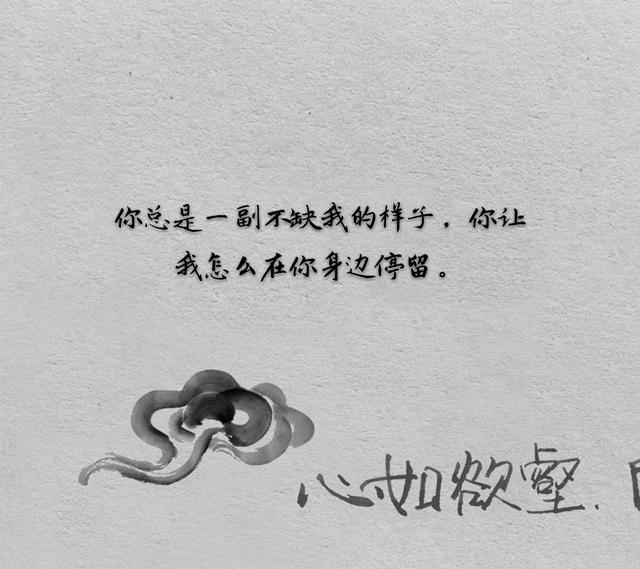 你总是一副不缺我的样子，你让
我怎么在你身边停留。
心如欲壑.